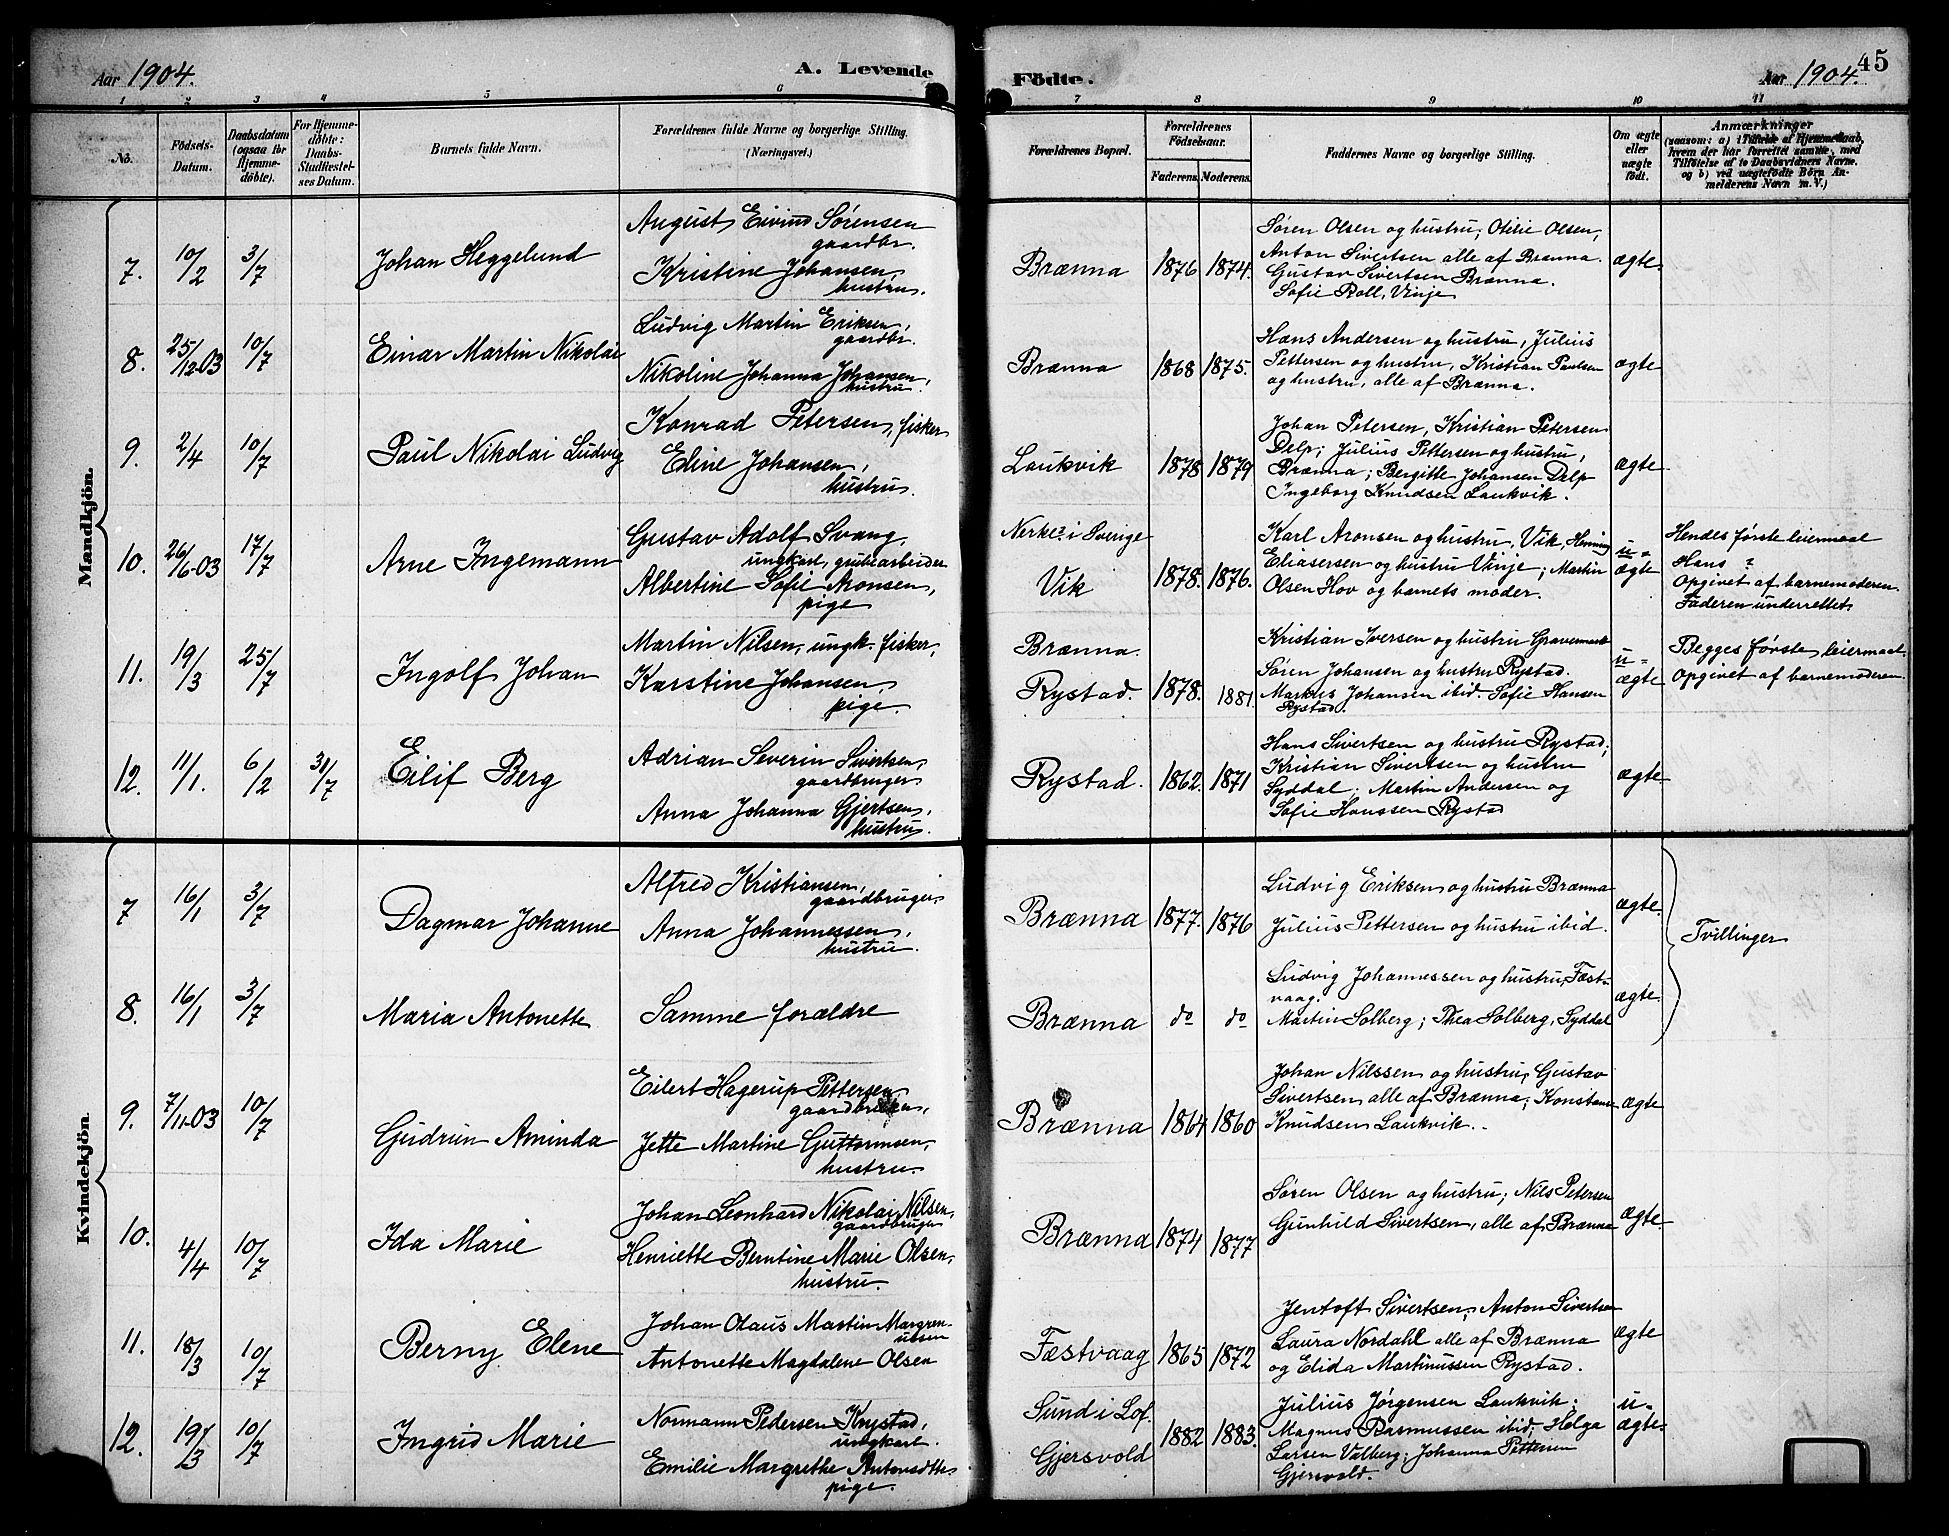 Aar 1904.
A. Levende
Födte.
Aar 1904.
45
1 2 3 4 5 6 7 8 9 10 11
No.
Födsels-
Datum.
Daabsdatum
(ogsaa for
Hjemme-
döbte).
For Hjemme-
döbte:
Daabs-
Stadfæstel-
ses Datum.
Barnets fulde Navn.
Forældrenes fulde Navne og borgerlige Stilling.
(Næringsvei.)
Forældrenes Bopæl.
Forældrenes
Födselsaar.
Faderens. Moderens.
Faddernes Navne og borgerlige Stilling.
Om ægte
eller
uægte
födt.
Anmærkninger
(saasom: a) i Tilfælde af Hjemmedaab,
hvem der har forrettet samme, med
Tilföielse af to Daabsvidners Navne.
og b) ved uægtefödte Börn An-
melderens Navn m. V.)
Mandkjön.
7. 10/2 3/7
Johan Heggelund
August Eivind Sørensen
gaardbr.
Kristine Johansen,
hustru.
Brænna 1876 1874.
Søren Olsen og hustru; Otilie Olsen,
Anton Sivertsen alle af Brænna.
Gustav Sivertsen Brænna.
Sofie Roll, Vinje
ægte
8. 25/12-03 10/7
Einar Martin Nikolai
Ludvig Martin Eriksen,
gaardbr.
Nikoline Johanna Johansen,
hustru.
Brænna 1868 1875.
Hans Andersen og hustru, Julius
Pettersen og hustru, Kristian Paulsen
og hustru, alle af Brænna.
ægte
9. 2/4 10/7
Paul Nikolai Ludvig
Konrad Petersen, fisker
Eline Johansen,
hustru.
Laukvik 1878 1879
Johan Petersen, Kristian Petersen
Delp; Julius Pettersen og hustru,
Brænna; Bergitte Johansen Delp
Ingeborg Knudsen Laukvik.
ægte
10. 26/6-03 17/7
Arne Ingemann
Gustav Adolf Svang,
ungkarl, grubearbeider
Albertine Sofie Aronsen,
pige
Nerke? i Sverige
Vik 1878. 1876.
Karl Aronsen og hustru, Vik, Henning
Eliasersen og hustru Vinje; Martin
Olsen Hov og barnets moder.
u-
ægte
Hendes første leiermaal
Hans ?
Opgivet af barnemoderen.
Faderen underrettet.
11. 19/3 25/7
Ingolf Johan
Martin Nilsen, ungk. fisker,
Karstine Johansen,
pige.
Brænna.
Rystad. 1878. 1881.
Kristian Iversen og hustru Gravermark
Søren Johansen og hustru Rystad.
Markus Johansen ibid. Sofie Hansen
Rystad.
u-
ægte
Begges første leiermaal.
Opgivet af barnemoderen.
12. 11/1. 6/2 31/7
Eilif Berg
Adrian Severin Sivertsen,
gaardbruger
Anna Johanna Gjertsen,
hustru.
Rystad. 1862. 1871
Hans Sivertsen og hustru Rystad;
Kristian Sivertsen og hustru
Syddal; Martin Andersen og
Sofie Hanssen Rystad
ægte
Kvindekjön
7 16/1 3/7
Dagmar Johanne
Alfred Kristiansen,
gaardbruger
Anna Johannessen,
hustru.
Brænna 1877. 1876
Ludvig Eriksen og hustru Brænna
Julius Pettersen og hustru ibid.
ægte
Tvillinger
8. 16/1 3/7
Maria Antonette
Samme forældre
Brænna do do
Ludvig Johannessen og hustru, Fæst-
vaag.
Martin Solberg; Thea Solberg, Syddal
ægte
9. 7/11-03 10/7
Gudrun Aminda
Eilert Hagerup Pettersen
gaardbruker,
Jette Martine Guttormsen,
hustru.
Brænna 1864 1860
Johan Nilssen og hustru, Gustav
Sivertsen alle af Brænna; Konstanse
Knudsen Laukvik.
ægte
10. 4/4 10/7
Ida Marie
Johan Leonhard Nikolai Nilsen,
gaardbruger
Henriette Berntine Marie Olsen,
hustru.
Brænna 1874 1877
Søren Olsen og hustru; Nils Petersen
Gunhild Sivertsen, alle af Brænna
ægte
11. 18/3 10/7
Berny Elene
Johan Olaus Martin Margren-
Antonette Magdalene Olsen
Fæstvaag 1865 1872
Jentoft Sivertsen; Anton Sivertsen
Laura Nordahl alle af Brænna
og Elida Martinussen Rystad.
ægte
12. 19/3 10/7
Ingrid Marie
Normann Pedersen Krystad,
ungkarl.
Emilie Margrethe Antonsdtter
pige.
Sund i Lof.
Gjersvold 1882 1883.
Julius Jørgensen Laukvik;
Magnus Rasmussen ibid; Helga
Larsen Valberg; Johanna Pettersen
Gjersvold.
u-
ægte